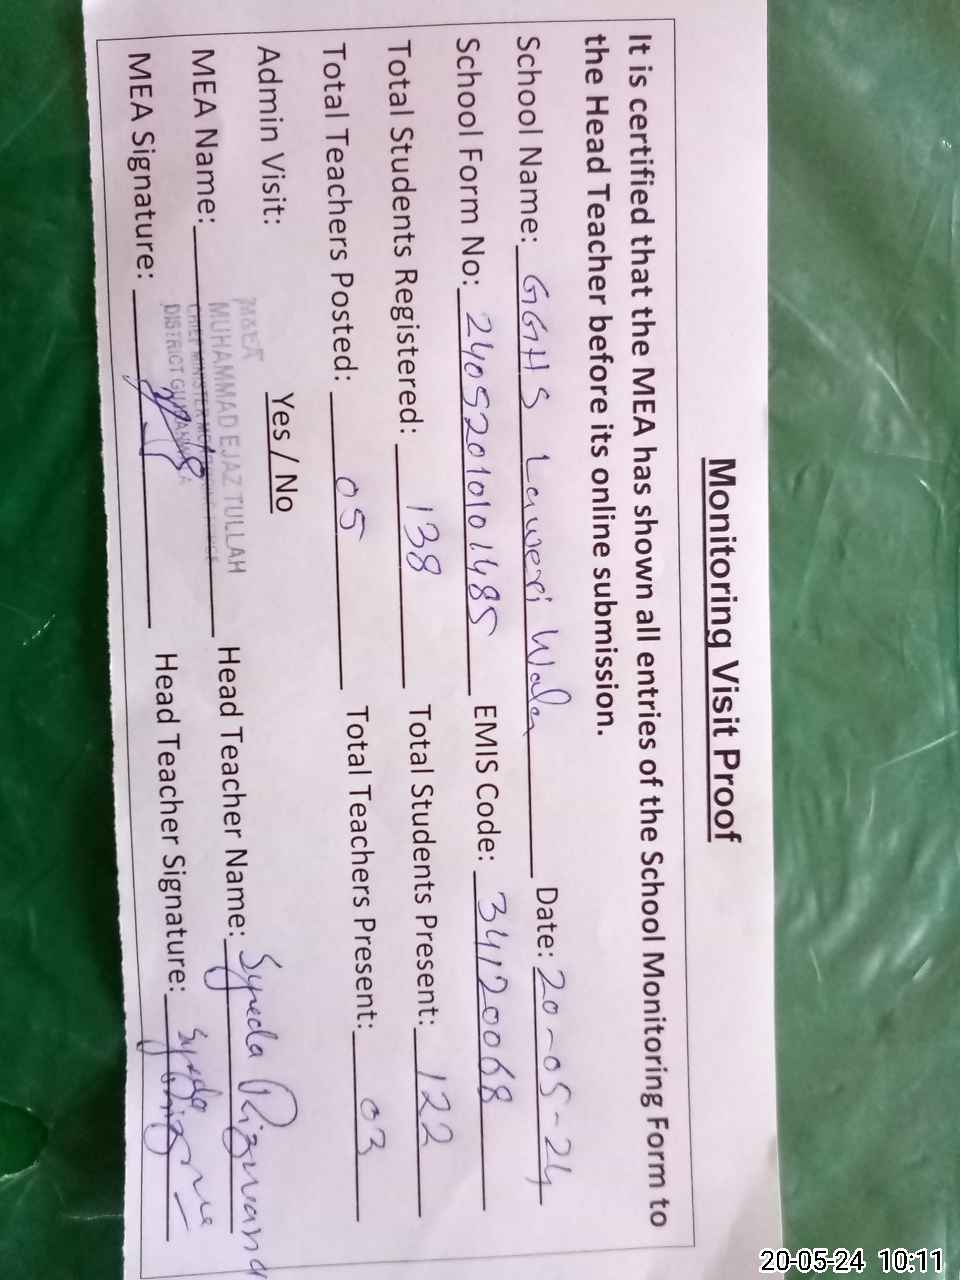 Monitoring Visit Proof
It is certified that the MEA has shown all entries of the School Monitoring Form to
the Head Teacher before its online submission.
School Name: GGHS Laweri Wala Date: 20-05-24
School Form No: 24052010101485 EMIS Code: 34120068
Total Students Registered: 138 Total Students Present: 122
Total Teachers Posted: 05 Total Teachers Present: 03
Admin Visit: Yes / No
M&EA
MEA Name: MUHAMMAD EJAZ TULLAH Head Teacher Name: Syeda Rizwana
CHIEF MINISTER
DISTRICT
MEA Signature: Head Teacher Signature: Syeda
20-05-24 10:11